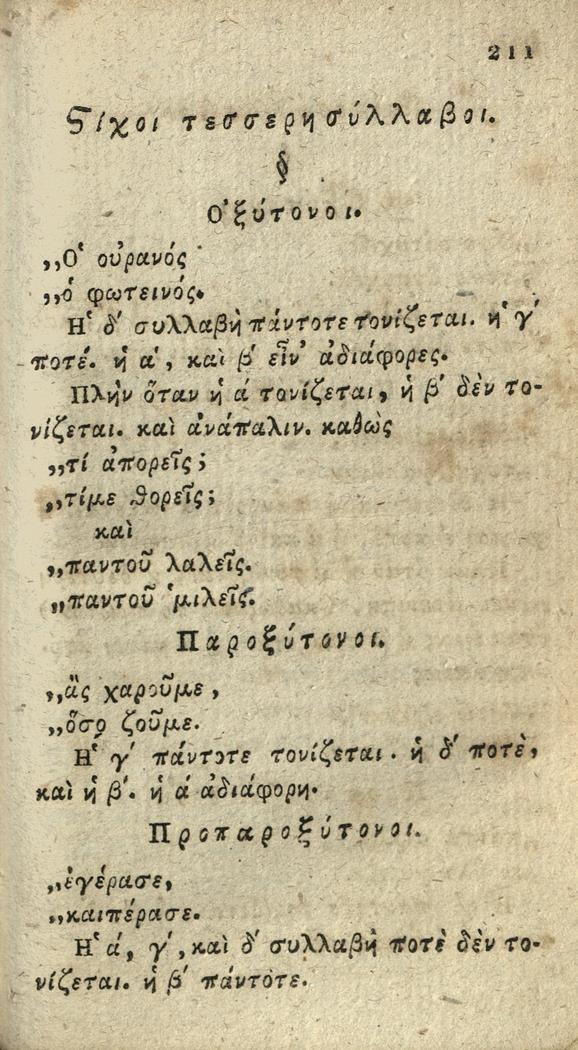 211
Ϛίχοι τεσσερησύλλαβοι.
§
Ὀξύτονοι.
„Ὁ οὐρανός
„ὁ φωτεινός.
Ἡ δ´ συλλαβὴ πάντοτε τονίζεται. ἡ γ´
ποτέ. ἡ α´, καὶ β´ εἶν᾿ ἀδιάφορες.
Πλὴν ὅταν ἡ ά τονίζεται, ἡ β´ δὲν το-
νίζεται. καὶ ἀνάπαλιν. καθὼς
„τί ἀπορεῖς;
„τίμε θορεῖς;
καὶ
„παντοῦ λαλεῖς.
„παντοῦ ᾿μιλεῖς.
Παροξύτονοι.
„ἂς χαροῦμε,
„ὅσο ζοῦμε.
Ἡ γ´ πάντοτε τονίζεται. ἡ δ´ ποτὲ,
καὶ ἡ β´. ἡ ά ἀδιάφορη.
Προπαροξύτονοι.
„ἐγέρασε,
„καιπέρασε.
Ἡ ά, γ´, καὶ δ´ συλλαβὴ ποτὲ δὲν το-
νίζεται. ἡ β´ πάντοτε.